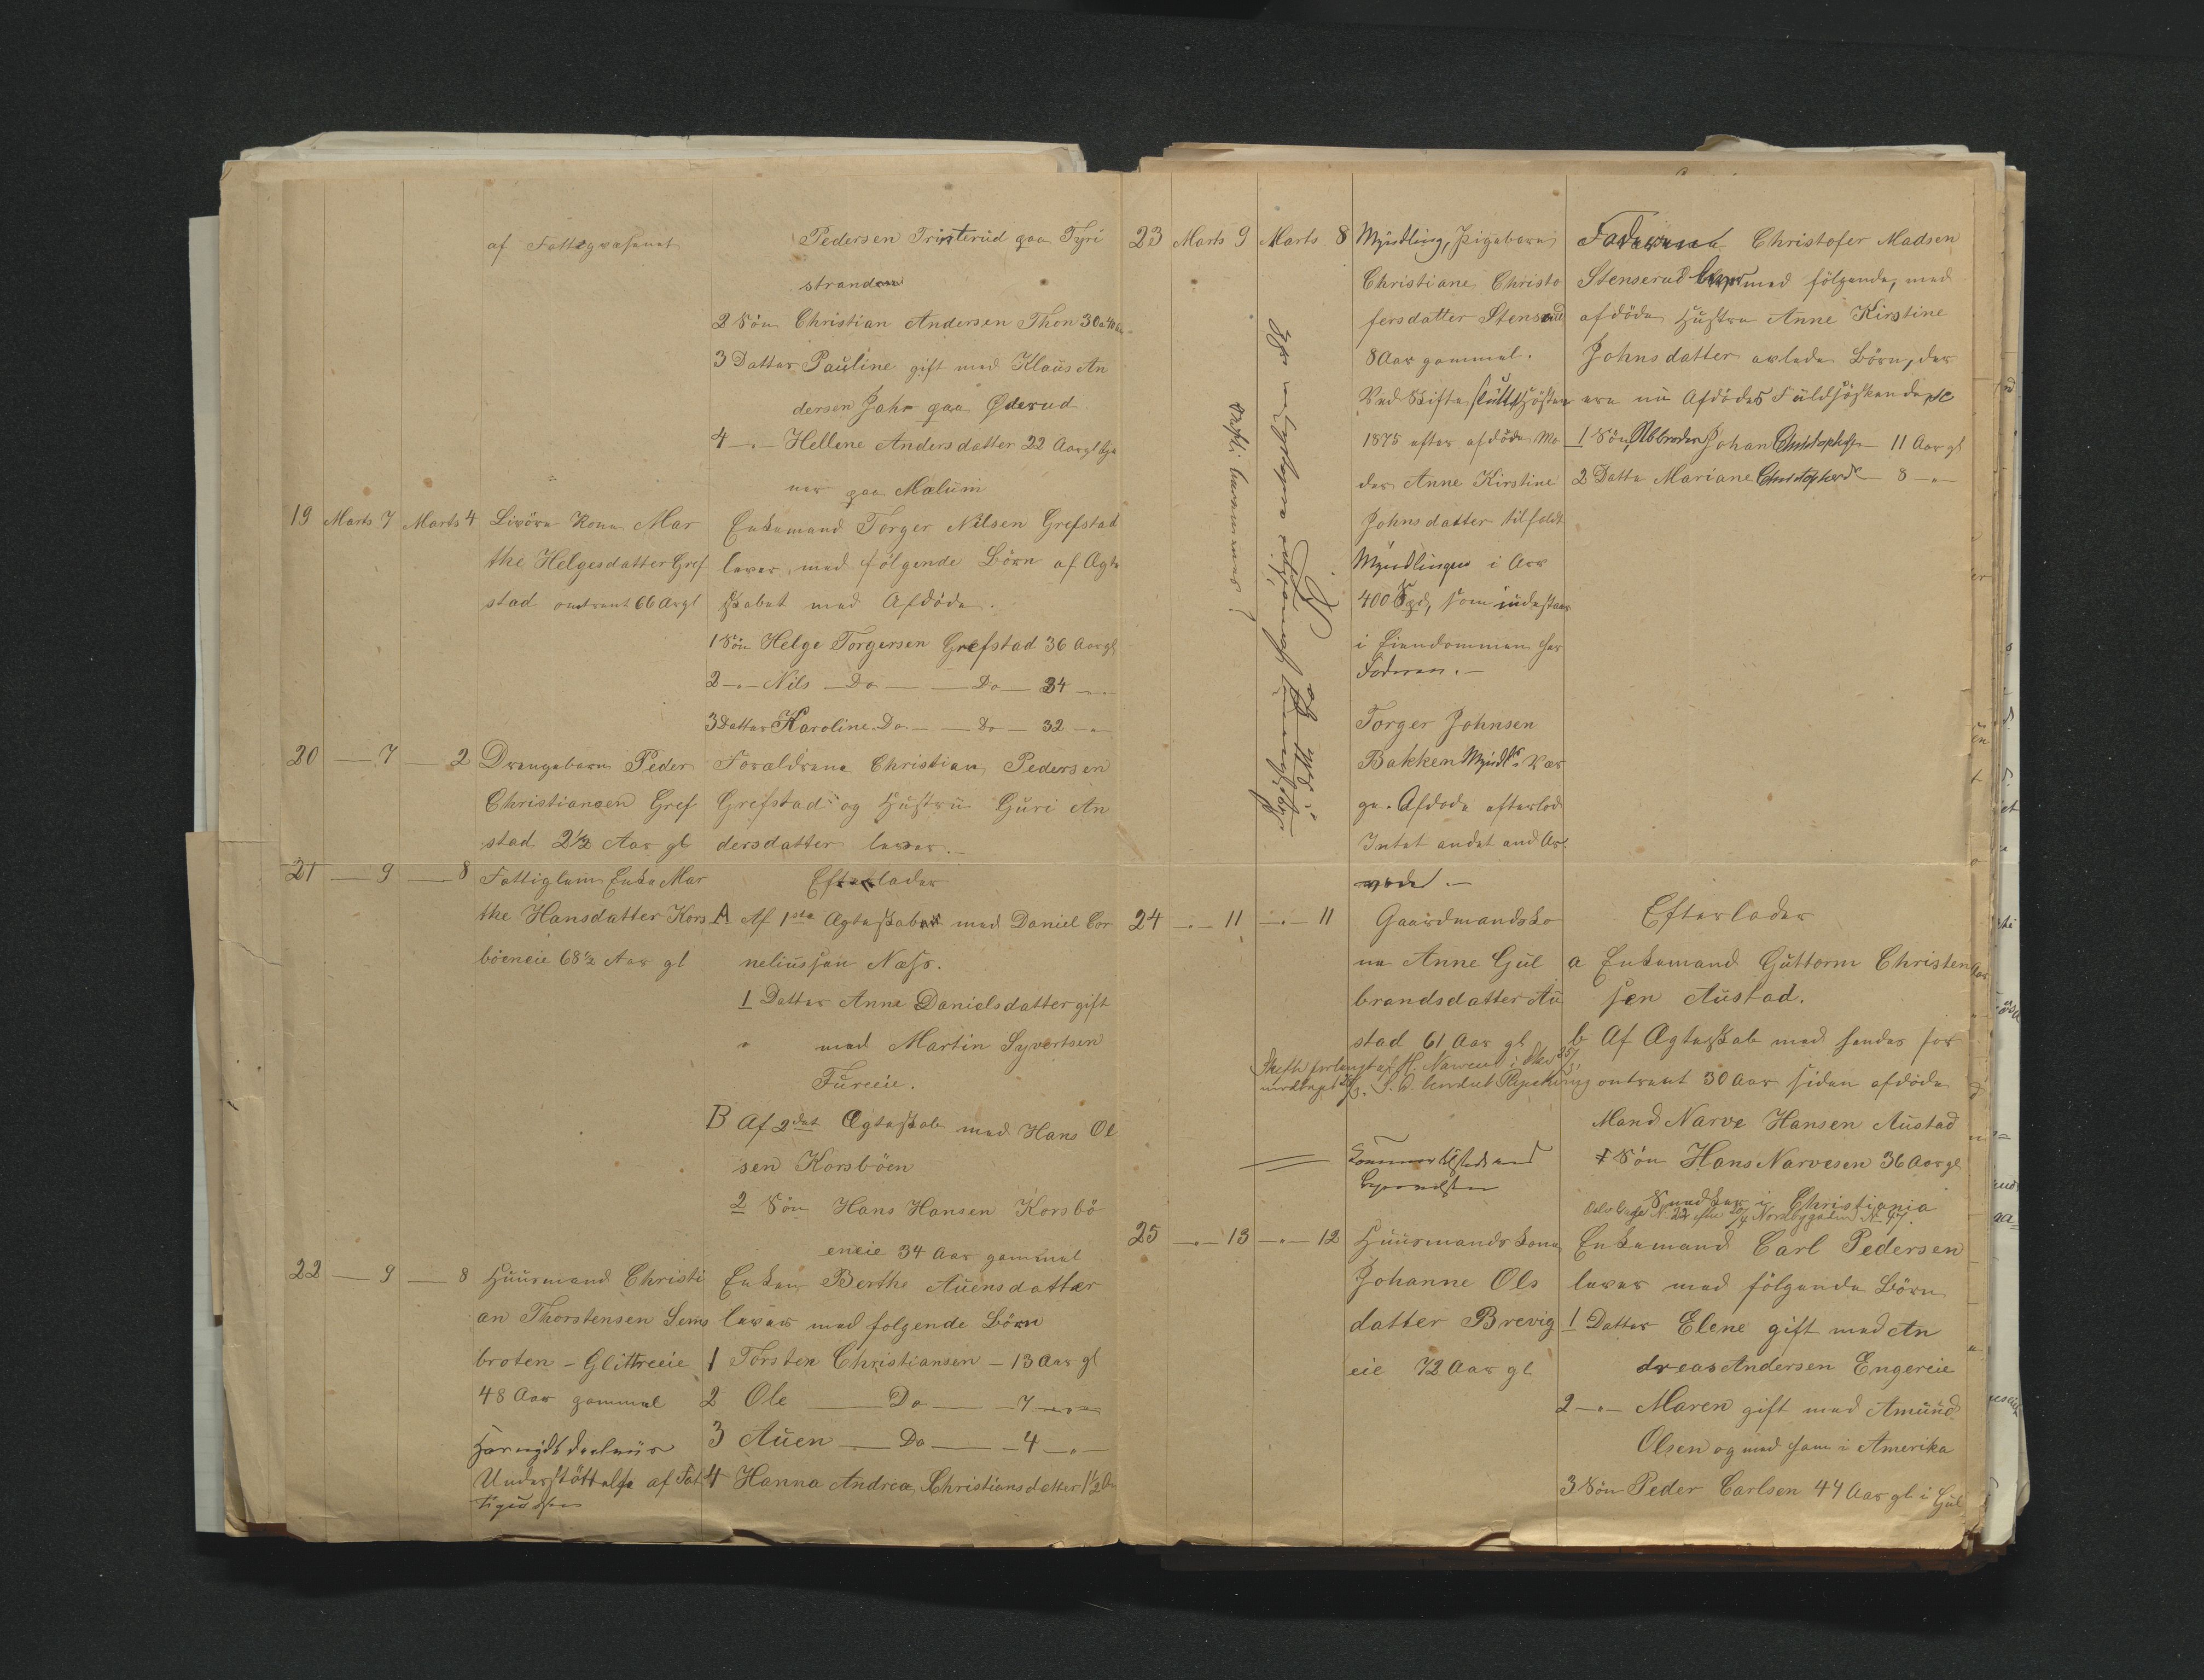 af Fattigvæsenet
Pedersen Tristerud paa Tyri
stranden
2 Sön Christian Andersen Thon 30 a 40 Aar
3 Datter Pauline gift med Klaus An
dersen Jahr paa Øderud
4 -"- Hellene Andersdatter 22 Aar gl tje
ner paa Mælum
19 Marts 7 Marts 4 Livöre Kone Mar
the Helgesdatter Gref
stad omtrent 66 Aar gl
Enkemand Torger Nilsen Grefstad
lever med følgende Börn af Ægte
skabet med Afdöde.
1 Sön Helge Torgersen Grefstad 36 Aar gl
2 -"- Nils — Do — — Do — 34 -"-
3 Datter Karoline Do — — Do — 32 -"-
20 — 7 — 2 Drengebarn Peder
Christiansen Gref
stad 2½ Aar gl
Forældrene Christian Pedersen
Grefstad og Hustru Guri An
dersdatter lever.
21 — 9 — 8 Fattiglem Enke Mar
the Hansdatter Kors
böeneie 68½ Aar gl
Efterlader
A Af 1ste Ægteskab med Daniel Cor
neliussen Næss.
1 Datter Anne Danielsdatter gift
med Martin Syvertsen
Fureeie.
B Af 2det Ægteskab med Hans Ol
sen Korsböen
2 Sön Hans Hansen Korsbö
eneie 34 Aar gammel
22 — 9 — 8 Huusmand Christi
an Thorstensen Sems
broten - Glittreeie
48 Aar gammel
Har nydt
Understöttelse af Fat
tigvæsen
Enken Berthe Auensdatter
lever med følgende Börn
1 Torsten Christiansen — 13 Aar gl
2 Ole — Do — 7 -"-
3 Auen — Do — 4 -"-
4 Hanna Andrea Christiansdatter 1½ Aar
23 Marts 9 Marts 8 Myndling, Pigebarn
Christiane Christo
fersdatter Stenserud
8 Aar gammel.
Ved Skifte sluttet Hösten
1875 efter afdöde Mo
der Anne Kirstine
Johnsdatter tilfaldt
Myndlingen i Arv
400 Spd, som indestaar
i Eiendommen hos
Faderen.-
Torger Johnsen
Bakken Myndl. Vær
ge. Afdöde efterlod
Intet andet end Ar
ven.-
Faderen Christofer Madsen
Stenserud lever med fölgende, med
afdöde Hustru Anne Kirstine
Johnsdatter avlede Börn, der
ere nu Afdödes Fuldsöskende
1 Sön Johan Christophersen 11 Aar gl
2 Datter Mariane Christophersd. 8 -"-
24 -"- 11 -"- 11 Gaardmandsko
ne Anne Gul
brandsdatter Au
stad 61 Aar gl
Efterlader
a Enkemand Guttorm Christen
sen Austad.
b Af Ægteskab med hendes for
omtrent 30 Aar siden afdöde
Mand Narve Hansen Austad
1 Sön Hans Narvesen 36 Aar gl
Snedker i Christiania
25 -"- 13 -"- 12 Huusmandskone
Johanne Ols
datter Brevig
eie 72 Aar gl
Enkemand Carl Pedersen
lever med fölgende Börn
1 Datter Elene gift med An
dreas Andersen Engereie
2 -"- Maren gift med Amund
Olsen og med ham i Amerika
3 Sön Peder Carlsen 44 Aar gl i Gul